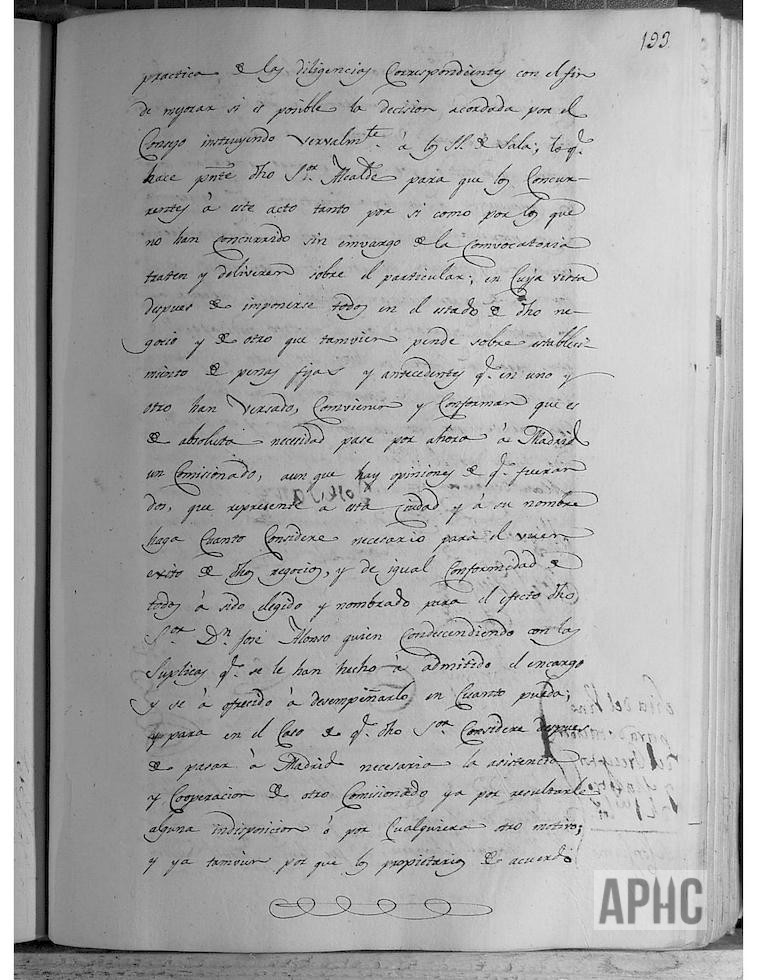 199
practica de las diligencias Correspondientes con el fin
de mejorar si es posible la decision acordada por el
Consejo instruyendo vervalmte. á los SS. de Sala; lo q.
hace pnte dho Sor. Alcalde para que los Concur-
rentes á este acto tanto por si como por los que
no han concurrido sin envargo de la Convocatoria
traten y deliveren sobre el particular; en Cuya vista
despues de imponerse todos en el estado de dho ne-
gocio y de otro que tamvien pende sobre estableci-
miento de penas fijas y antecedentes q. en uno y
otro han Versado, Convienen y Conforman que es
de absoluta necesidad pase por ahora á Madrid
un Comisionado, aun que hay opiniones de q. fueran
dos, que represente a esta Ciudad y á su nombre
haga Cuanto Considere necesario para el vuen
exito de dhos negocios, y de igual Conformidad de
todos á sido elegido y nombrado para el efecto dho
Sor Dn. José Alonso quien Condescendiendo con las
Suplicas q. se le han hecho á admitido el encargo
y se á ofrecido á desempeñarlo en Cuanto pueda;
y para en el Caso de q. dho Sor. Considere despues
de pasar á Madrid necesaria la asistencia
y Cooperacion de otro Comisionado ya por resultarle
alguna indisposicion ó por Cualquiera otro motivo;
y ya tamvien por que los propietarios de acuerdo
APHC